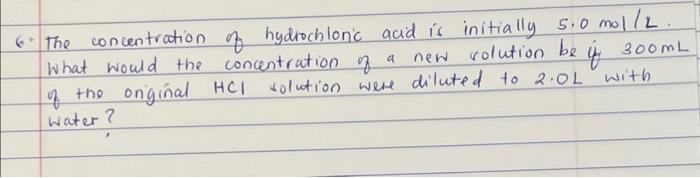 6. The concentration of hydrochloric acid is initially 5.0 mol/L.
What would the concentration of a new solution be if 300mL
of the original HCl solution were diluted to 2.0L with
water?